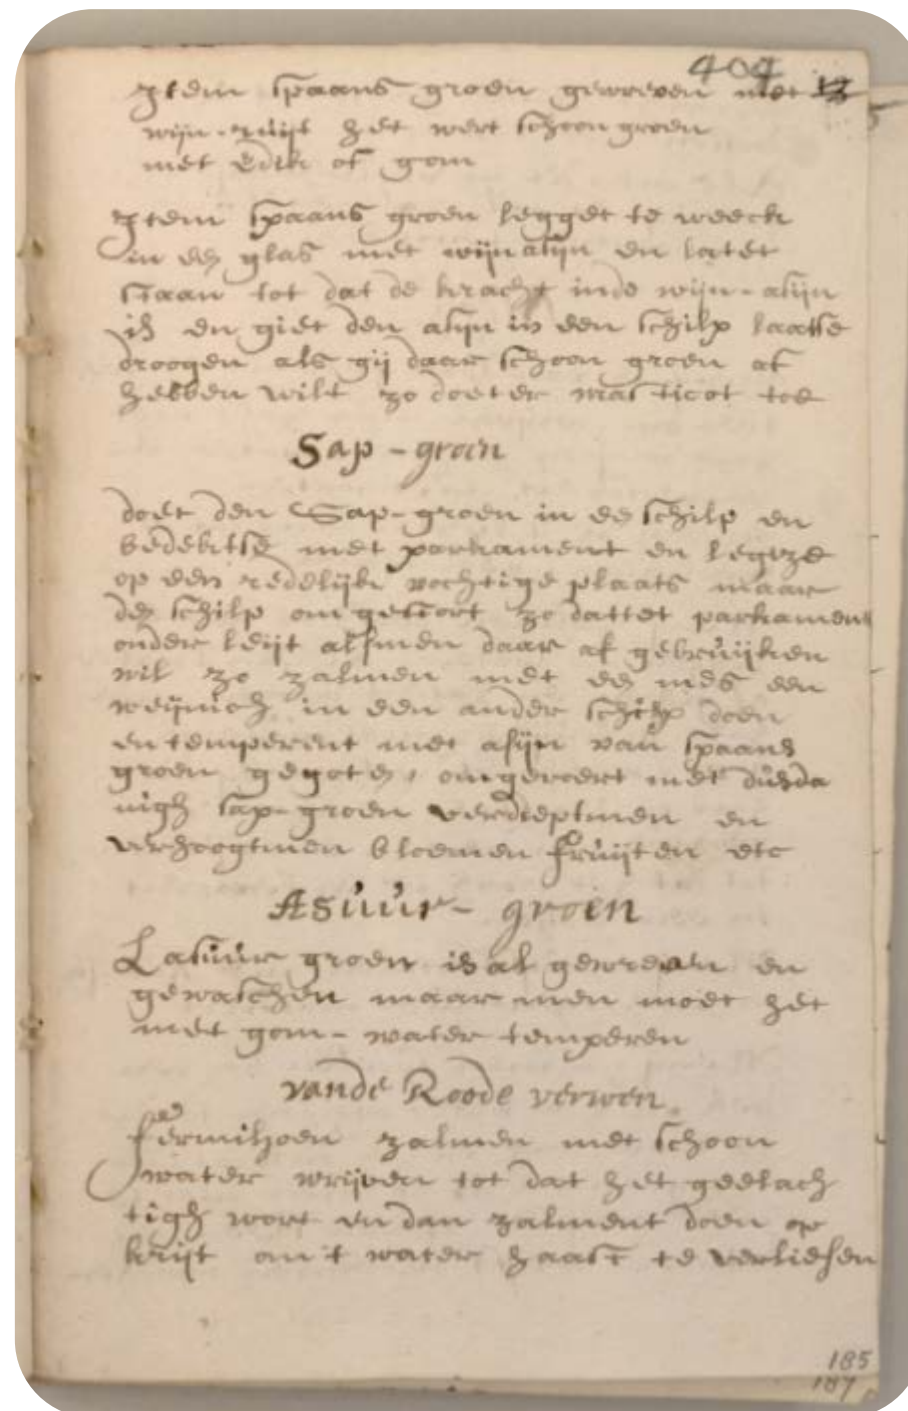 404
Jtem spaans groen gewreven met 13
wijn-ruijt het wert schoon groen
met Edik of gom
Jtem spaans groen legget te weeck
in een glas met wijn asijn en latet
staan tot dat de kracht inde wijn-asijn
is en giet den asijn in een schilp laatse
droogen als gij daar schoon groen af
hebben wilt zo doeter masticot toe
Sap-groen
doet den Sap-groen in ee schilp en
bedektse met parkament en legtze
op een redelijk vochtige plaats maar
de schilp omgestort zo dattet parkament
onder leijt alsmen daar af gebruijken
wil zo zalmen met ee mes een
weijnich in een ander schilp doen
en temperent met asijn van spaans
groen gegoten omgeroert met dusda
nigh sap-groen verdieptmen en
verhoogtmen bloemen fruijten etc
Asuur-groein
Lasuur groen is al gewreven en
gewasschen maar men moet het
met gom-water temperen
vande Roode verwen
fermilioen zalmen met schoon
water wrijven tot dat het geelach
tigh wort en dan zalment doen op
krijt om 't water haast te verliesen
185
187